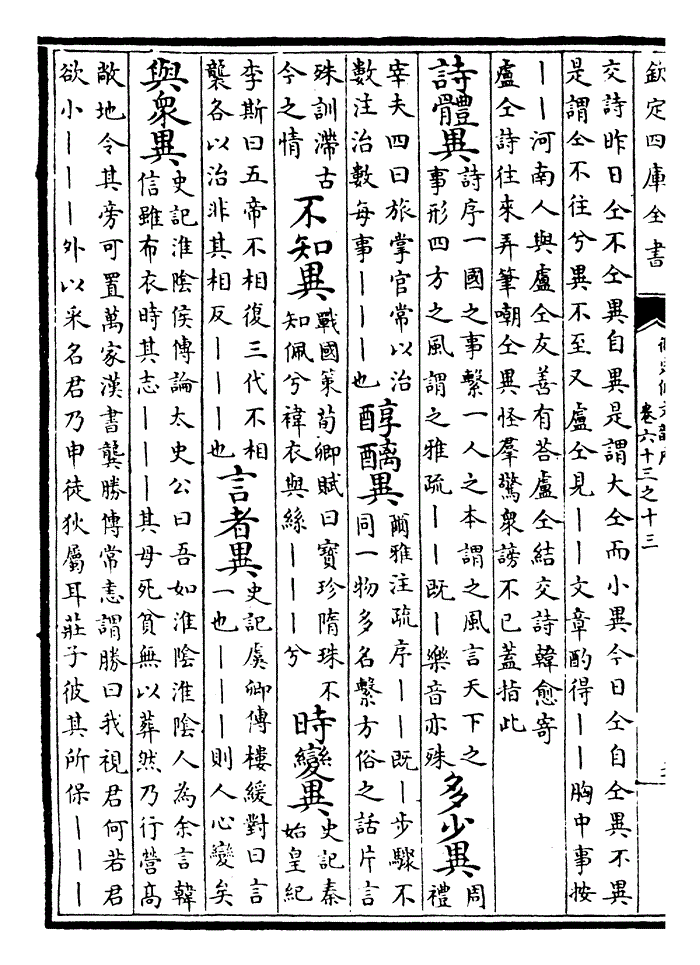 欽定四庫全書
卷六十三之十三
交詩昨日仝不仝異自異是謂大仝而小異今日仝自仝異不異
是謂仝不往兮異不至又盧仝見||文章酌得||胸中事按
||河南人與盧仝友善有荅盧仝結交詩韓愈寄
盧仝詩往來弄筆嘲仝異怪羣驚衆謗不已蓋指此
詩體異
詩序一國之事繫一人之本謂之風言天下之
事形四方之風謂之雅疏||既|樂音亦殊
多少異
周
禮
宰夫四曰旅掌官常以治
數注治數每事|||也
醇醨異
爾雅注疏序||既|步驟不
同一物多名繫方俗之話片言
殊訓滯古
今之情
不知異
戰國策荀卿賦曰寶珍隋珠不
知佩兮褘衣與絲|||兮
時變異
史記秦
始皇紀
李斯曰五帝不相復三代不相
襲各以治非其相反|||也
言者異
史記虞卿傳樓緩對曰言
一也|||則人心變矣
與衆異
史記淮陰侯傳論太史公曰吾如淮陰淮陰人為余言韓
信雖布衣時其志|||其母死貧無以葬然乃行營高
敞地令其旁可置萬家漢書龔勝傳常恚謂勝曰我視君何若君
欲小|||外以采名君乃申徒狄屬耳莊子彼其所保|||